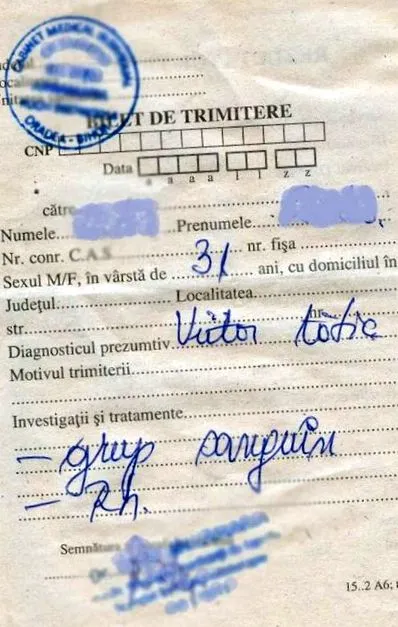 CABINET MEDICAL
ORADEA - BIHOR
BILET DE TRIMITERE
CNP
Data
a a a a l l z z
către
Numele Prenumele
Nr. conr. C.A.S. nr. fișa
Sexul M/F, în vârstă de 31 ani, cu domiciliul în
Județul Localitatea
str. nr.
Diagnosticul prezumtiv Viitor
Motivul trimiterii
Investigaţii şi tratamente
- grup sanguin
- Rh.
Semnătura
15..2 A6;